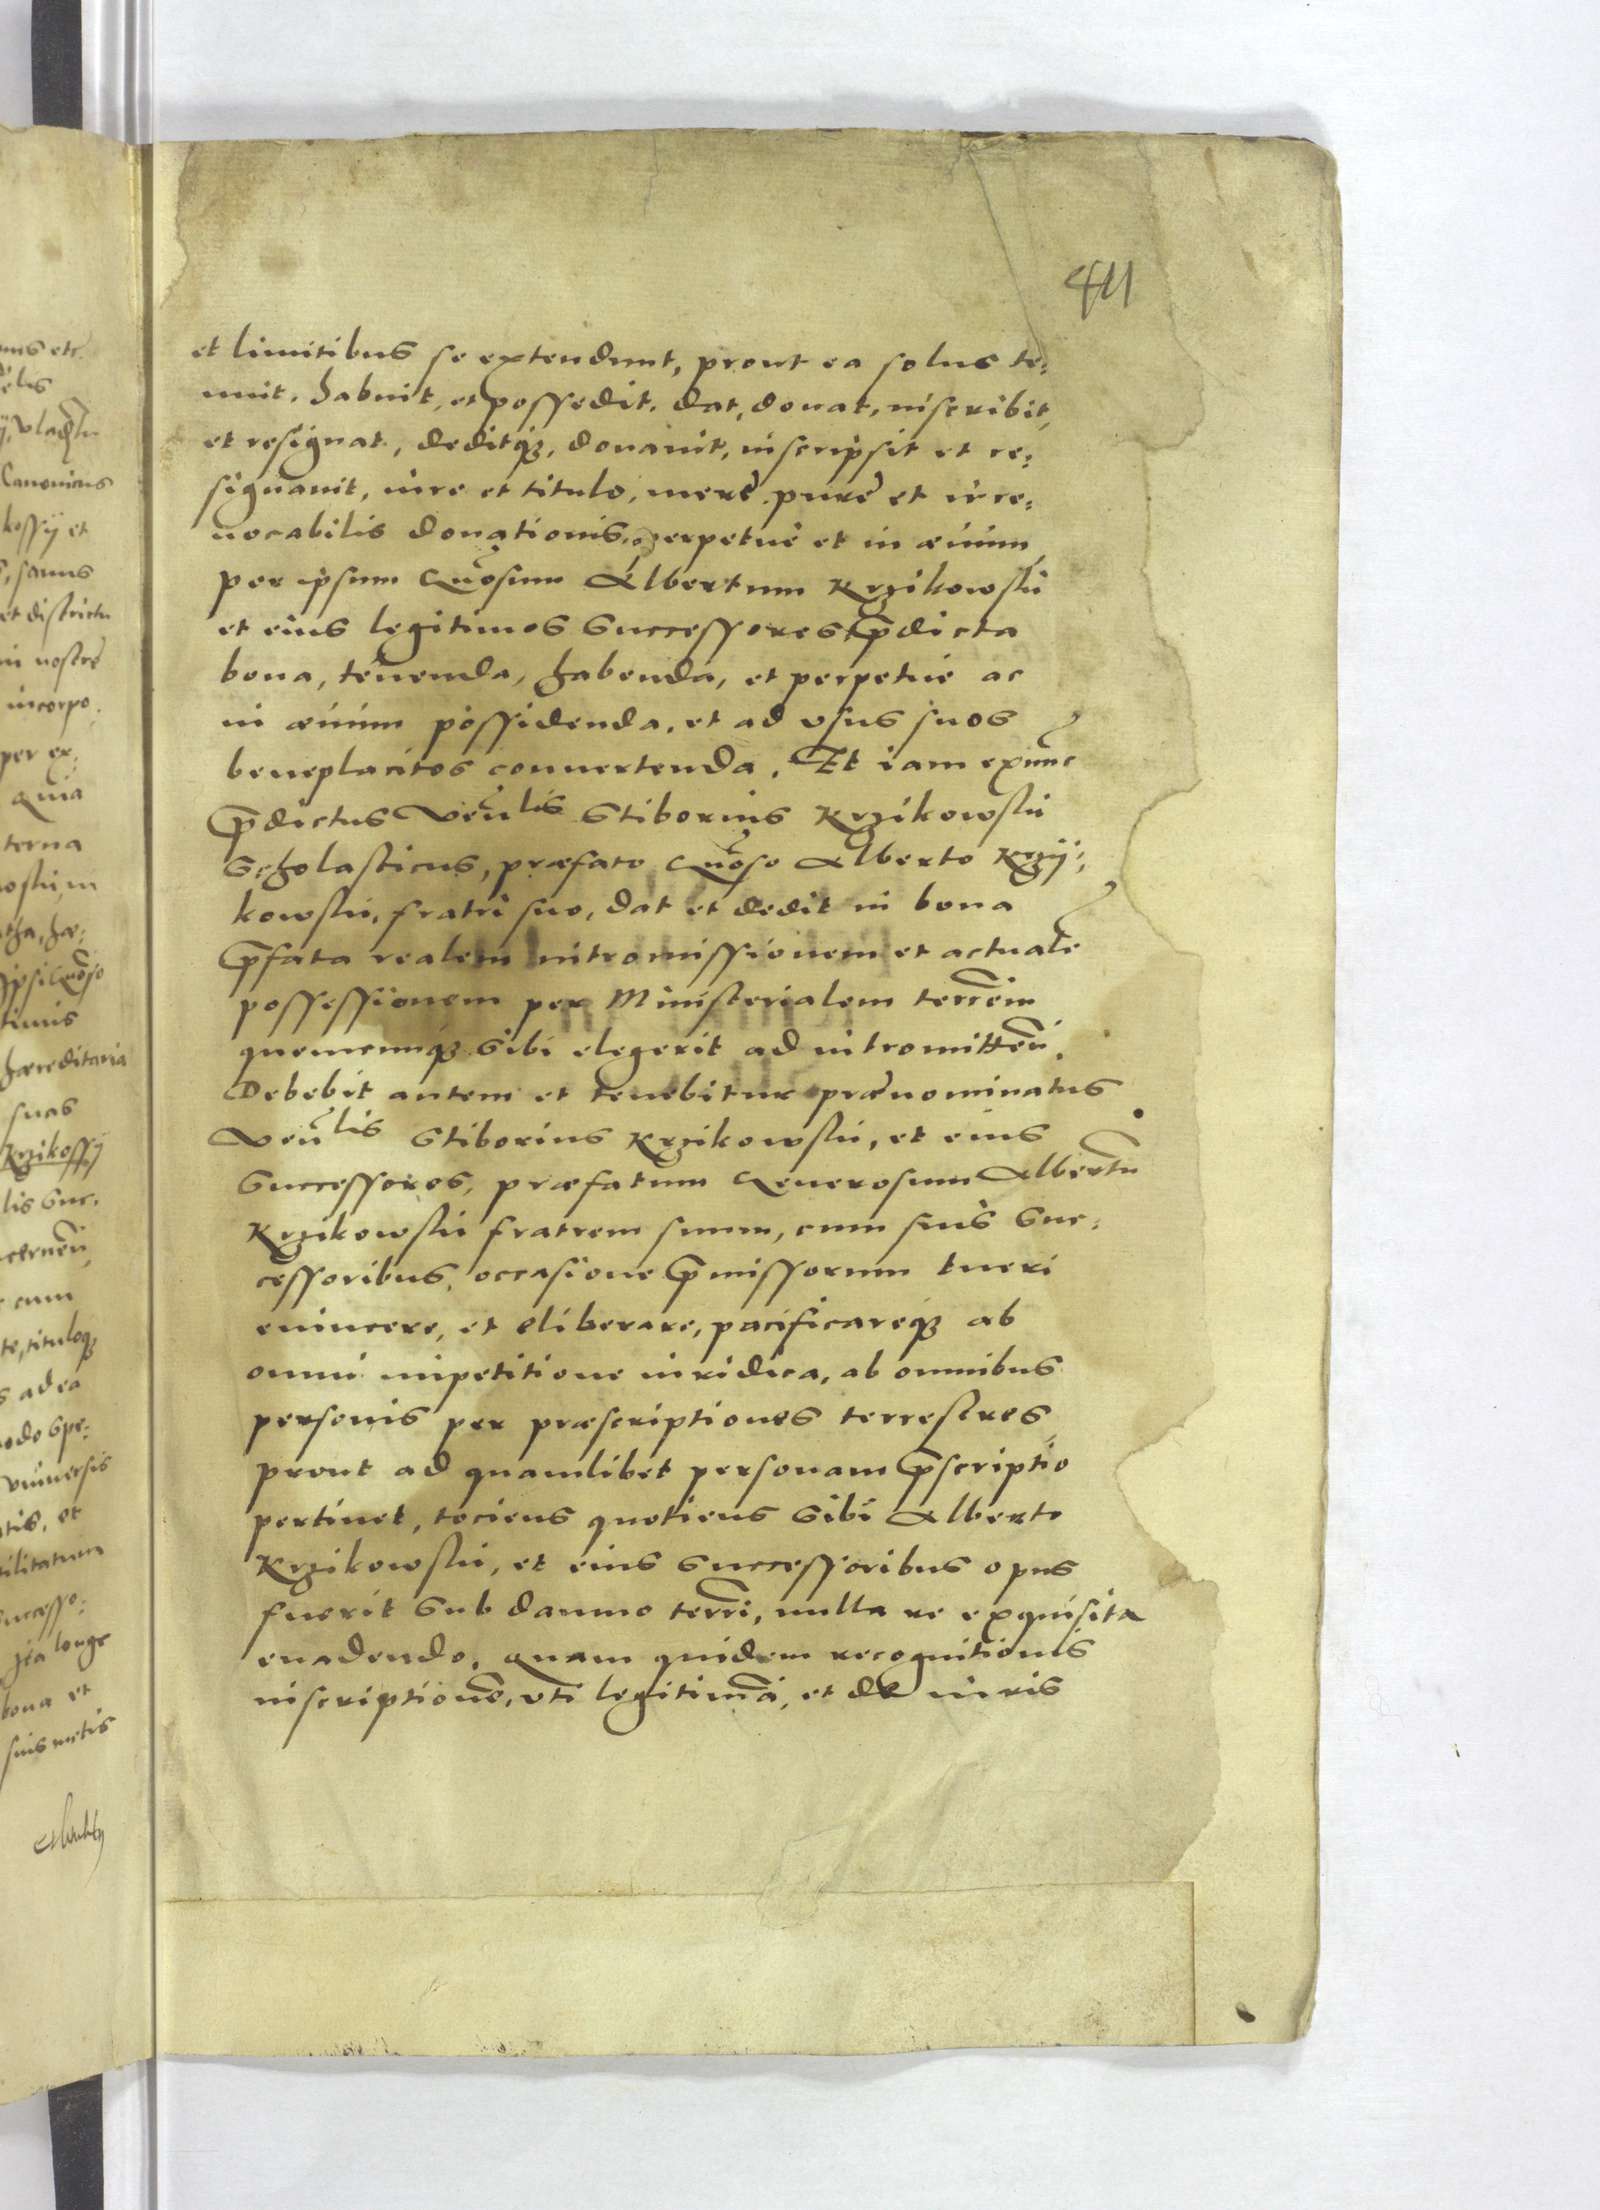 411
et limitibus se extendunt, prout ea solus te:
nuit, habuit, et possedit, dat, donat, inscribit,
et resignat, deditq3, donauit, inscripsit et re:
signauit, iure et titulo, merè purè et irre:
uocabilis donationis, perpetuè et in æuum,
per ipsum Gñosum Albertum Krzikowskii
et eius legitimos Successores, p̃dicta
bona, tenenda, habenda, et perpetuè ac
in æuum possidenda, et ad vsus suos
beneplacitos conuertenda. Et iam exnunc
p̃dictus Veñlis Stiborius Krzikowskii
Scholasticus, præfato Gñoso Alberto Krzÿ:
kowskii, fratri suo, dat et dedit in bona
p̃fata realem intromissionem et actualẽ
possessionem per Ministerialem terrẽm
quemcunq3 sibi elegerit ad intromitteñ.
Debebit autem et tenebitur prænominatus
Veñlis Stiborius Krzikowskii, et eius
Successores, præfatum Generosum Albertũ
Krzikowskii fratrem suum, cum suis Suc:
cessoribus, occasione p̃missorum tueri
euincere, et eliberare, pacificareq3 ab
omni impetitione iuridica, ab omnibus
personis per præscriptiones terrestres,
prout ad quamlibet personam p̃scriptio
pertinet, tociens quotiens sibi Alberto
Krzikowskii, et eius Successoribus opus
fuerit Sub damno terrĩ, nulla re exquisita
euadendo. Quam quidem recognitionis
inscriptionẽ, vti legitimã, et de iuris